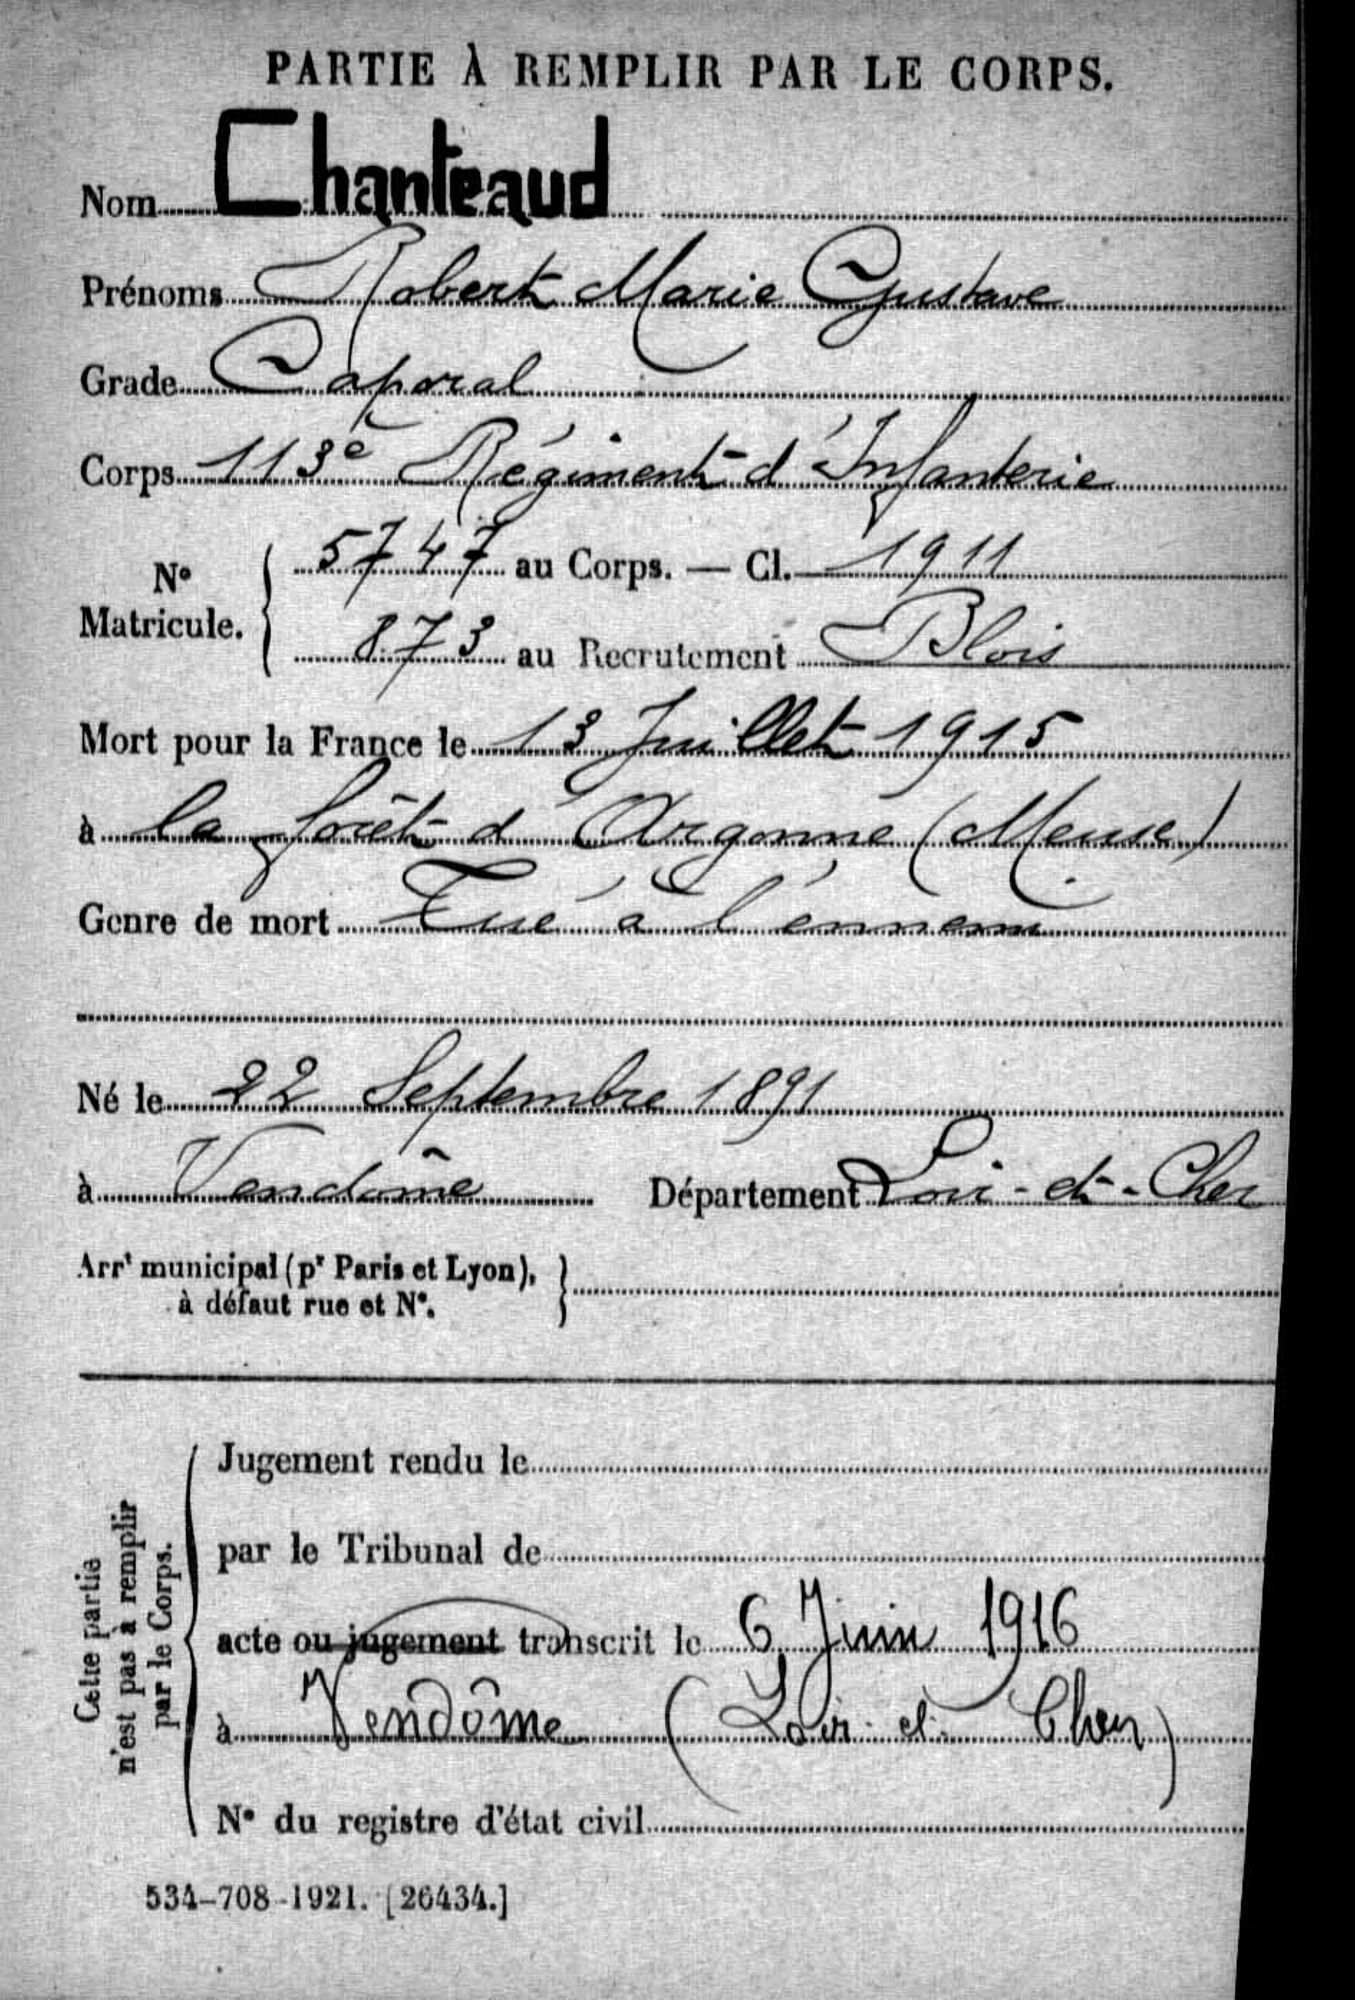 PARTIE À REMPLIR PAR LE CORPS.
Nom Chanteaud
Prénoms Robert Marie Gustave
Grade Caporal
Corps 113e Régiment d'Infanterie
N° Matricule. { 5747 au Corps. — Cl. 1911
873 au Recrutement Blois
Mort pour la France le 13 Juillet 1915
à la forêt d'Argonne (Meuse)
Genre de mort Tué à l'ennemi
Né le 22 Septembre 1891
à Vendôme Département Loir-et-Cher
Arrt municipal (pr Paris et Lyon), }
à défaut rue et N°.
Cette partie
n'est pas à remplir
par le Corps.
Jugement rendu le
par le Tribunal de
acte ou jugement transcrit le 6 Juin 1916
à Vendôme (Loir-et-Cher)
N° du registre d'état civil
534-708-1921. [26434.]